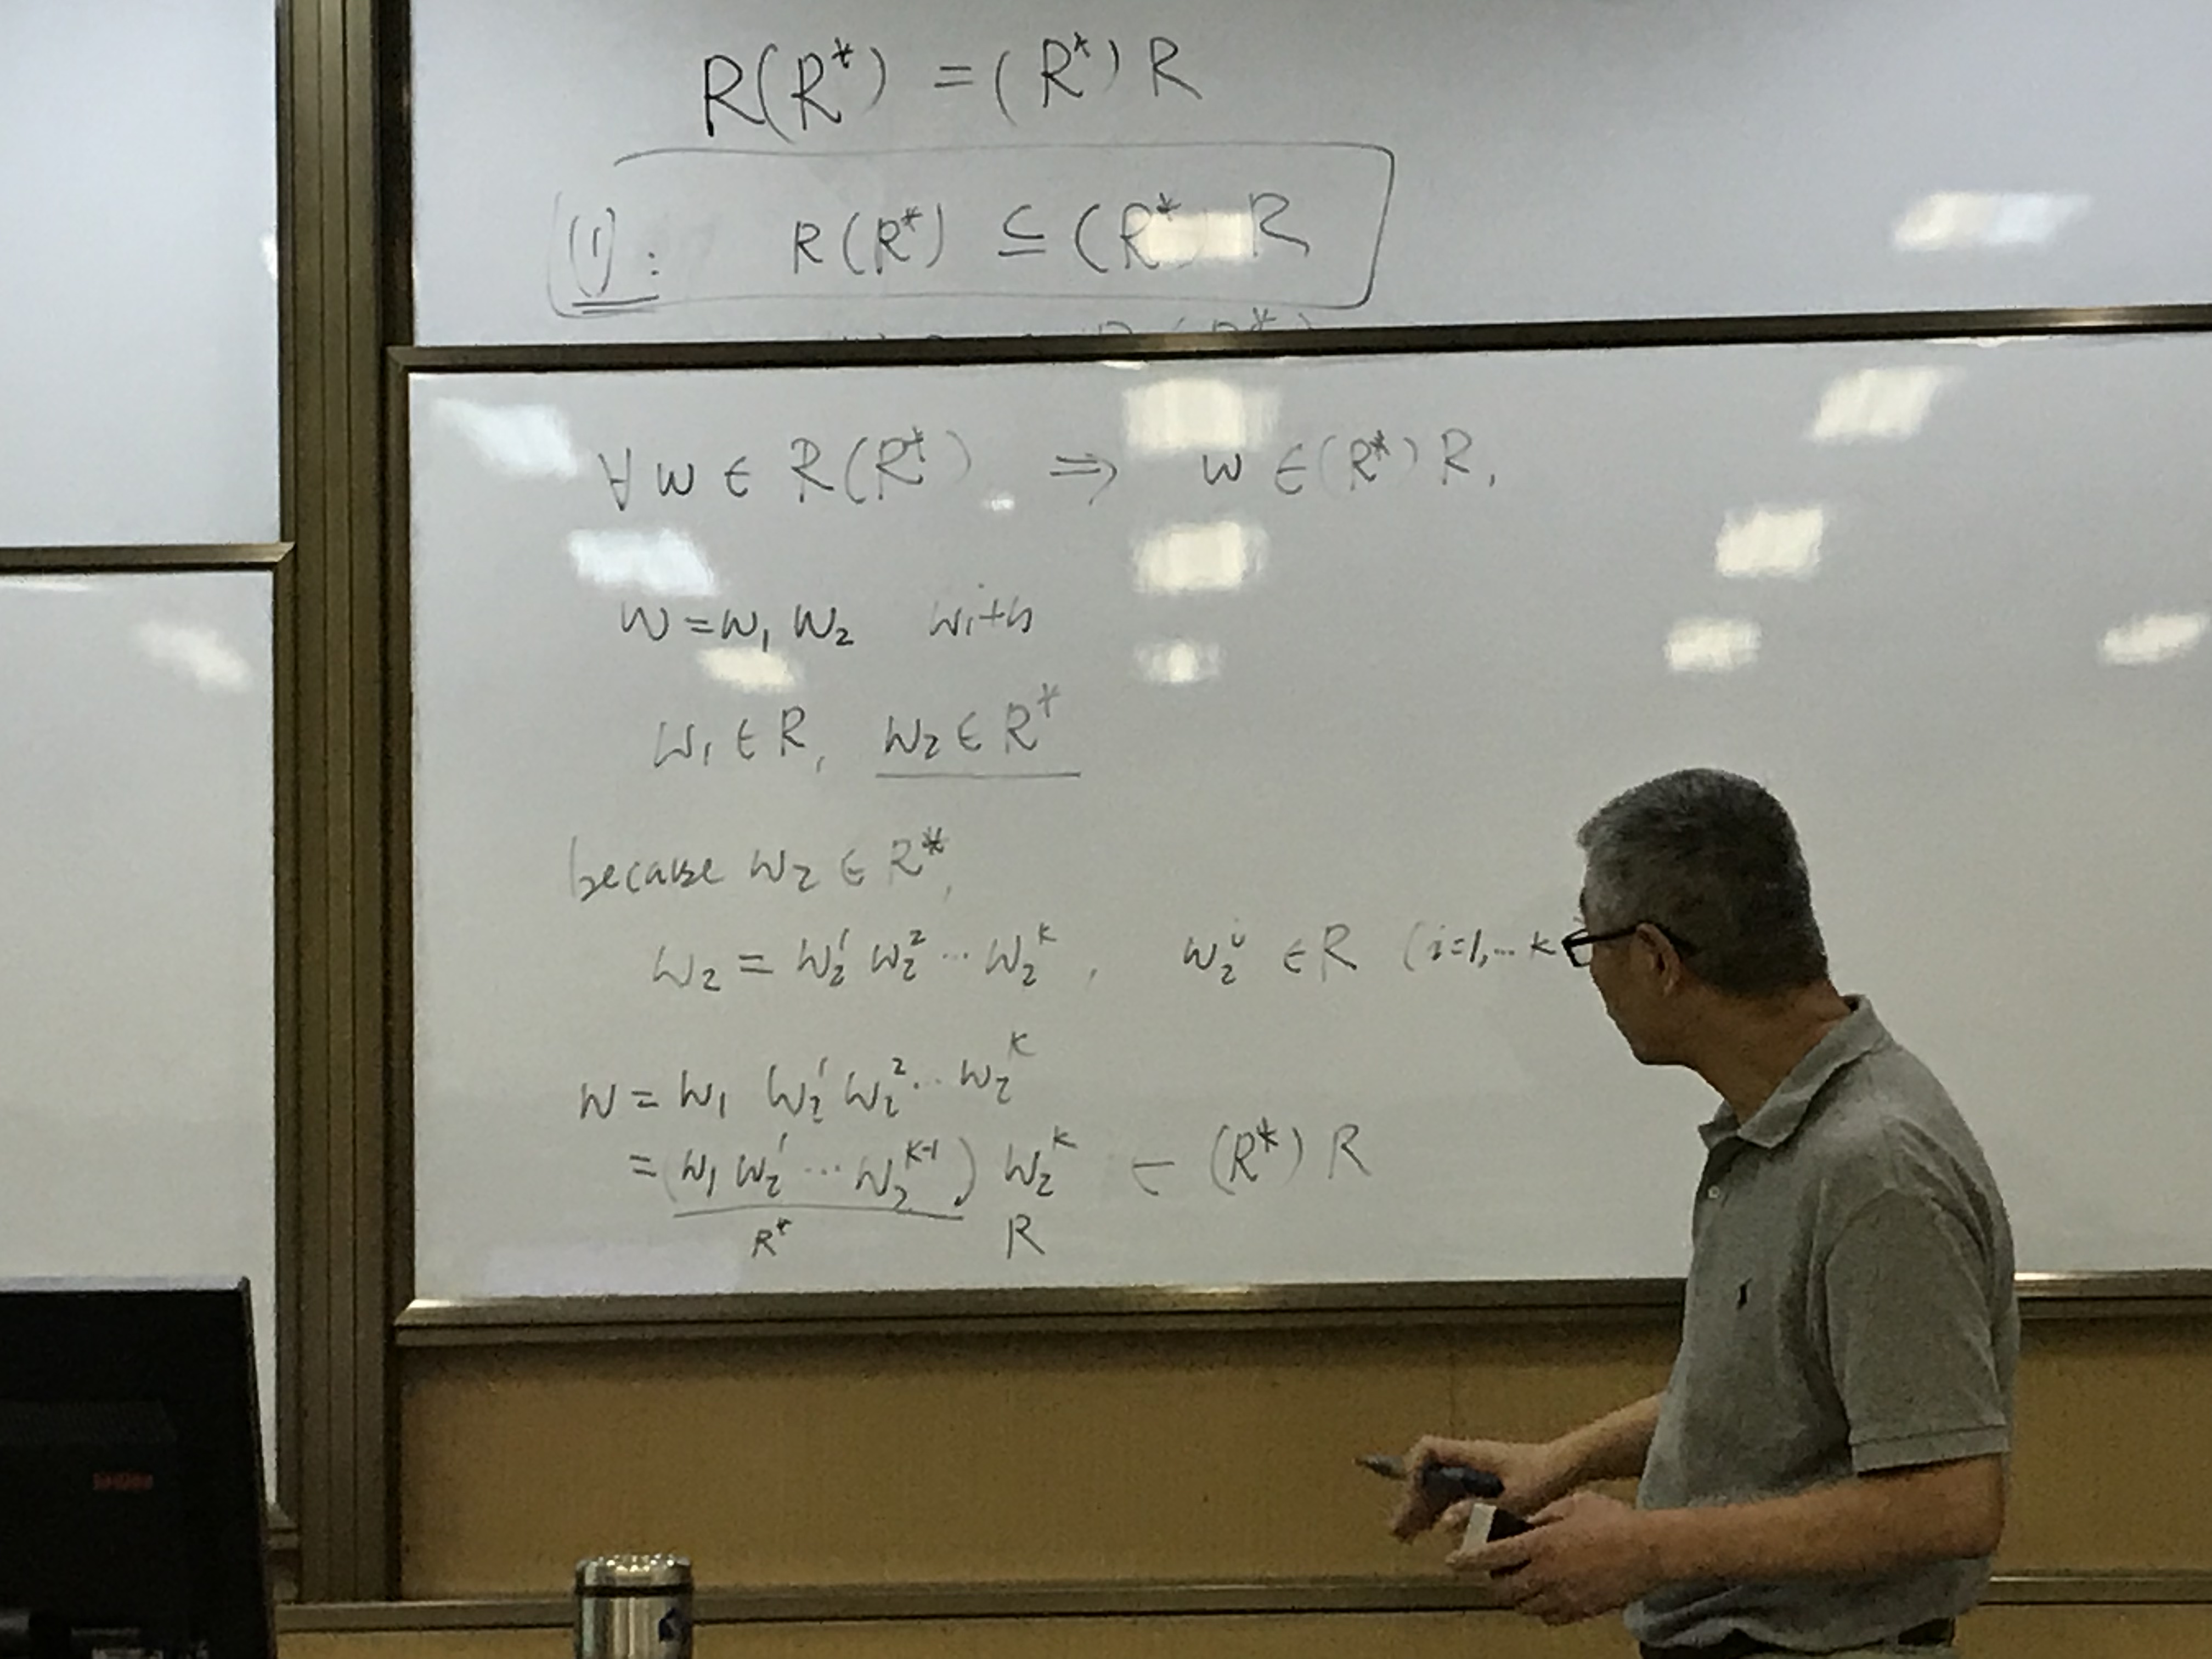 R(R*) = (R*) R
(1): R(R*) ⊆ (R*) R
∀ w ∈ R(R*) ⇒ w ∈ (R*) R,
w = w₁ w₂ with
w₁ ∈ R, w₂ ∈ R*
because w₂ ∈ R*,
w₂ = w₂¹ w₂² ... w₂ᵏ, w₂ⁱ ∈ R (i=1,... k
w = w₁ w₂¹ w₂² ... w₂ᵏ
= (w₁ w₂¹ ... w₂ᵏ⁻¹) w₂ᵏ ∈ (R*) R
R* R